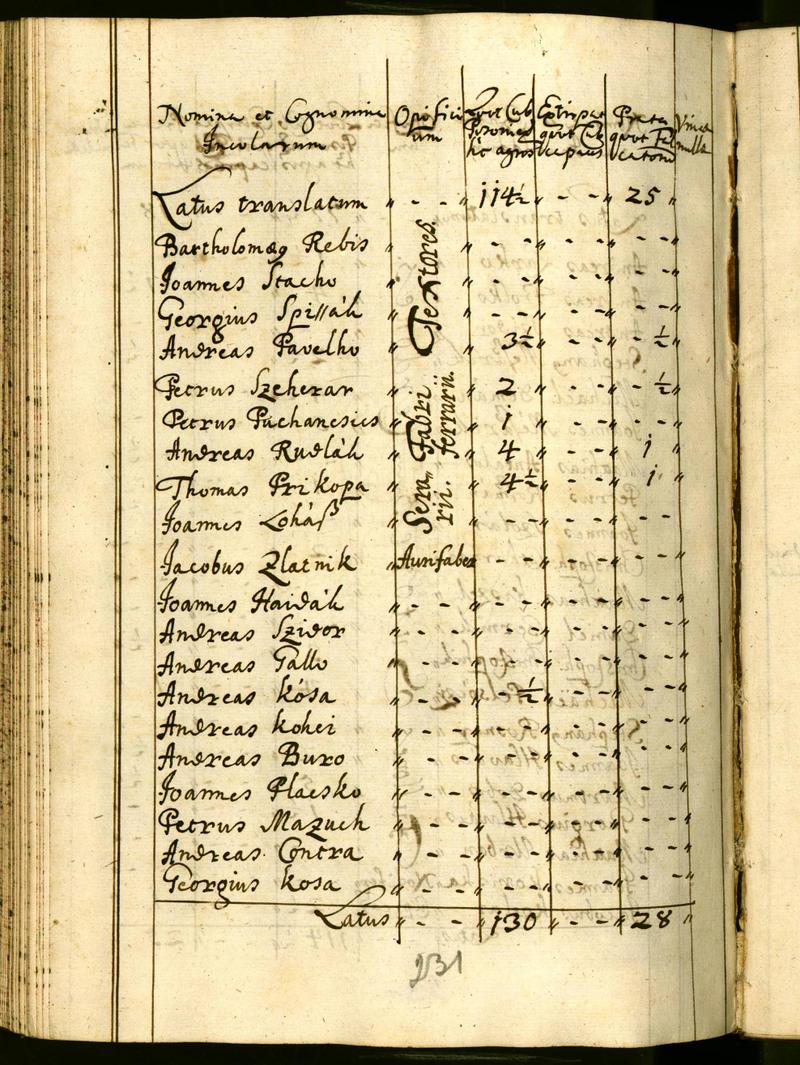 Nomina et Cognomina Incolarum Opificium Quot Cub Posonien hic agros Extirpat quot Cub capaces Prata quot Fal catorum Vinea nulla
Latus translatum " - - " 114½ " - - " 25 "
Bartholomæg Rebis " Textores " - - " - - " - - "
Joannes Stacho " " - - " - - " - - "
Georgius Spissák " " - - " - - " - - "
Andreas Pavelko " " 3½ " - - " - ½ "
Petrus Szeherar " Fabri ferrarii. " 2 " - - " - ½ "
Petrus Puchanesics " " 1 " - - " - - "
Andreas Rudlák " " 4 " - - " 1 "
Thomas Prikopa " Sera" rii. " 4½ " - - " 1 "
Joannes Loháß " " - - " - - " - -
Jacobus Zlatnik " Aurifaber - - " - - " - - "
Joannes Haidák " - - " - - " - - " - - "
Andreas Szidor " - - " - - " - - " - - "
Andreas Gallo " - - " - - " - - " - - "
Andreas kósa " - - " - ½ " - - " - - "
Andreas kohei " - - " - - " - - " - - "
Andreas Buro " - - " - - " - - " - - "
Joannes Placsko " - - " - - " - - " - - "
Petrus Mazuch " - - " - - " - - " - - "
Andreas Contra " - - " - - " - - " - - "
Georgius kosa " - - " - - " - - " - - "
Latus " - - " 130 " - - " 28 "
231